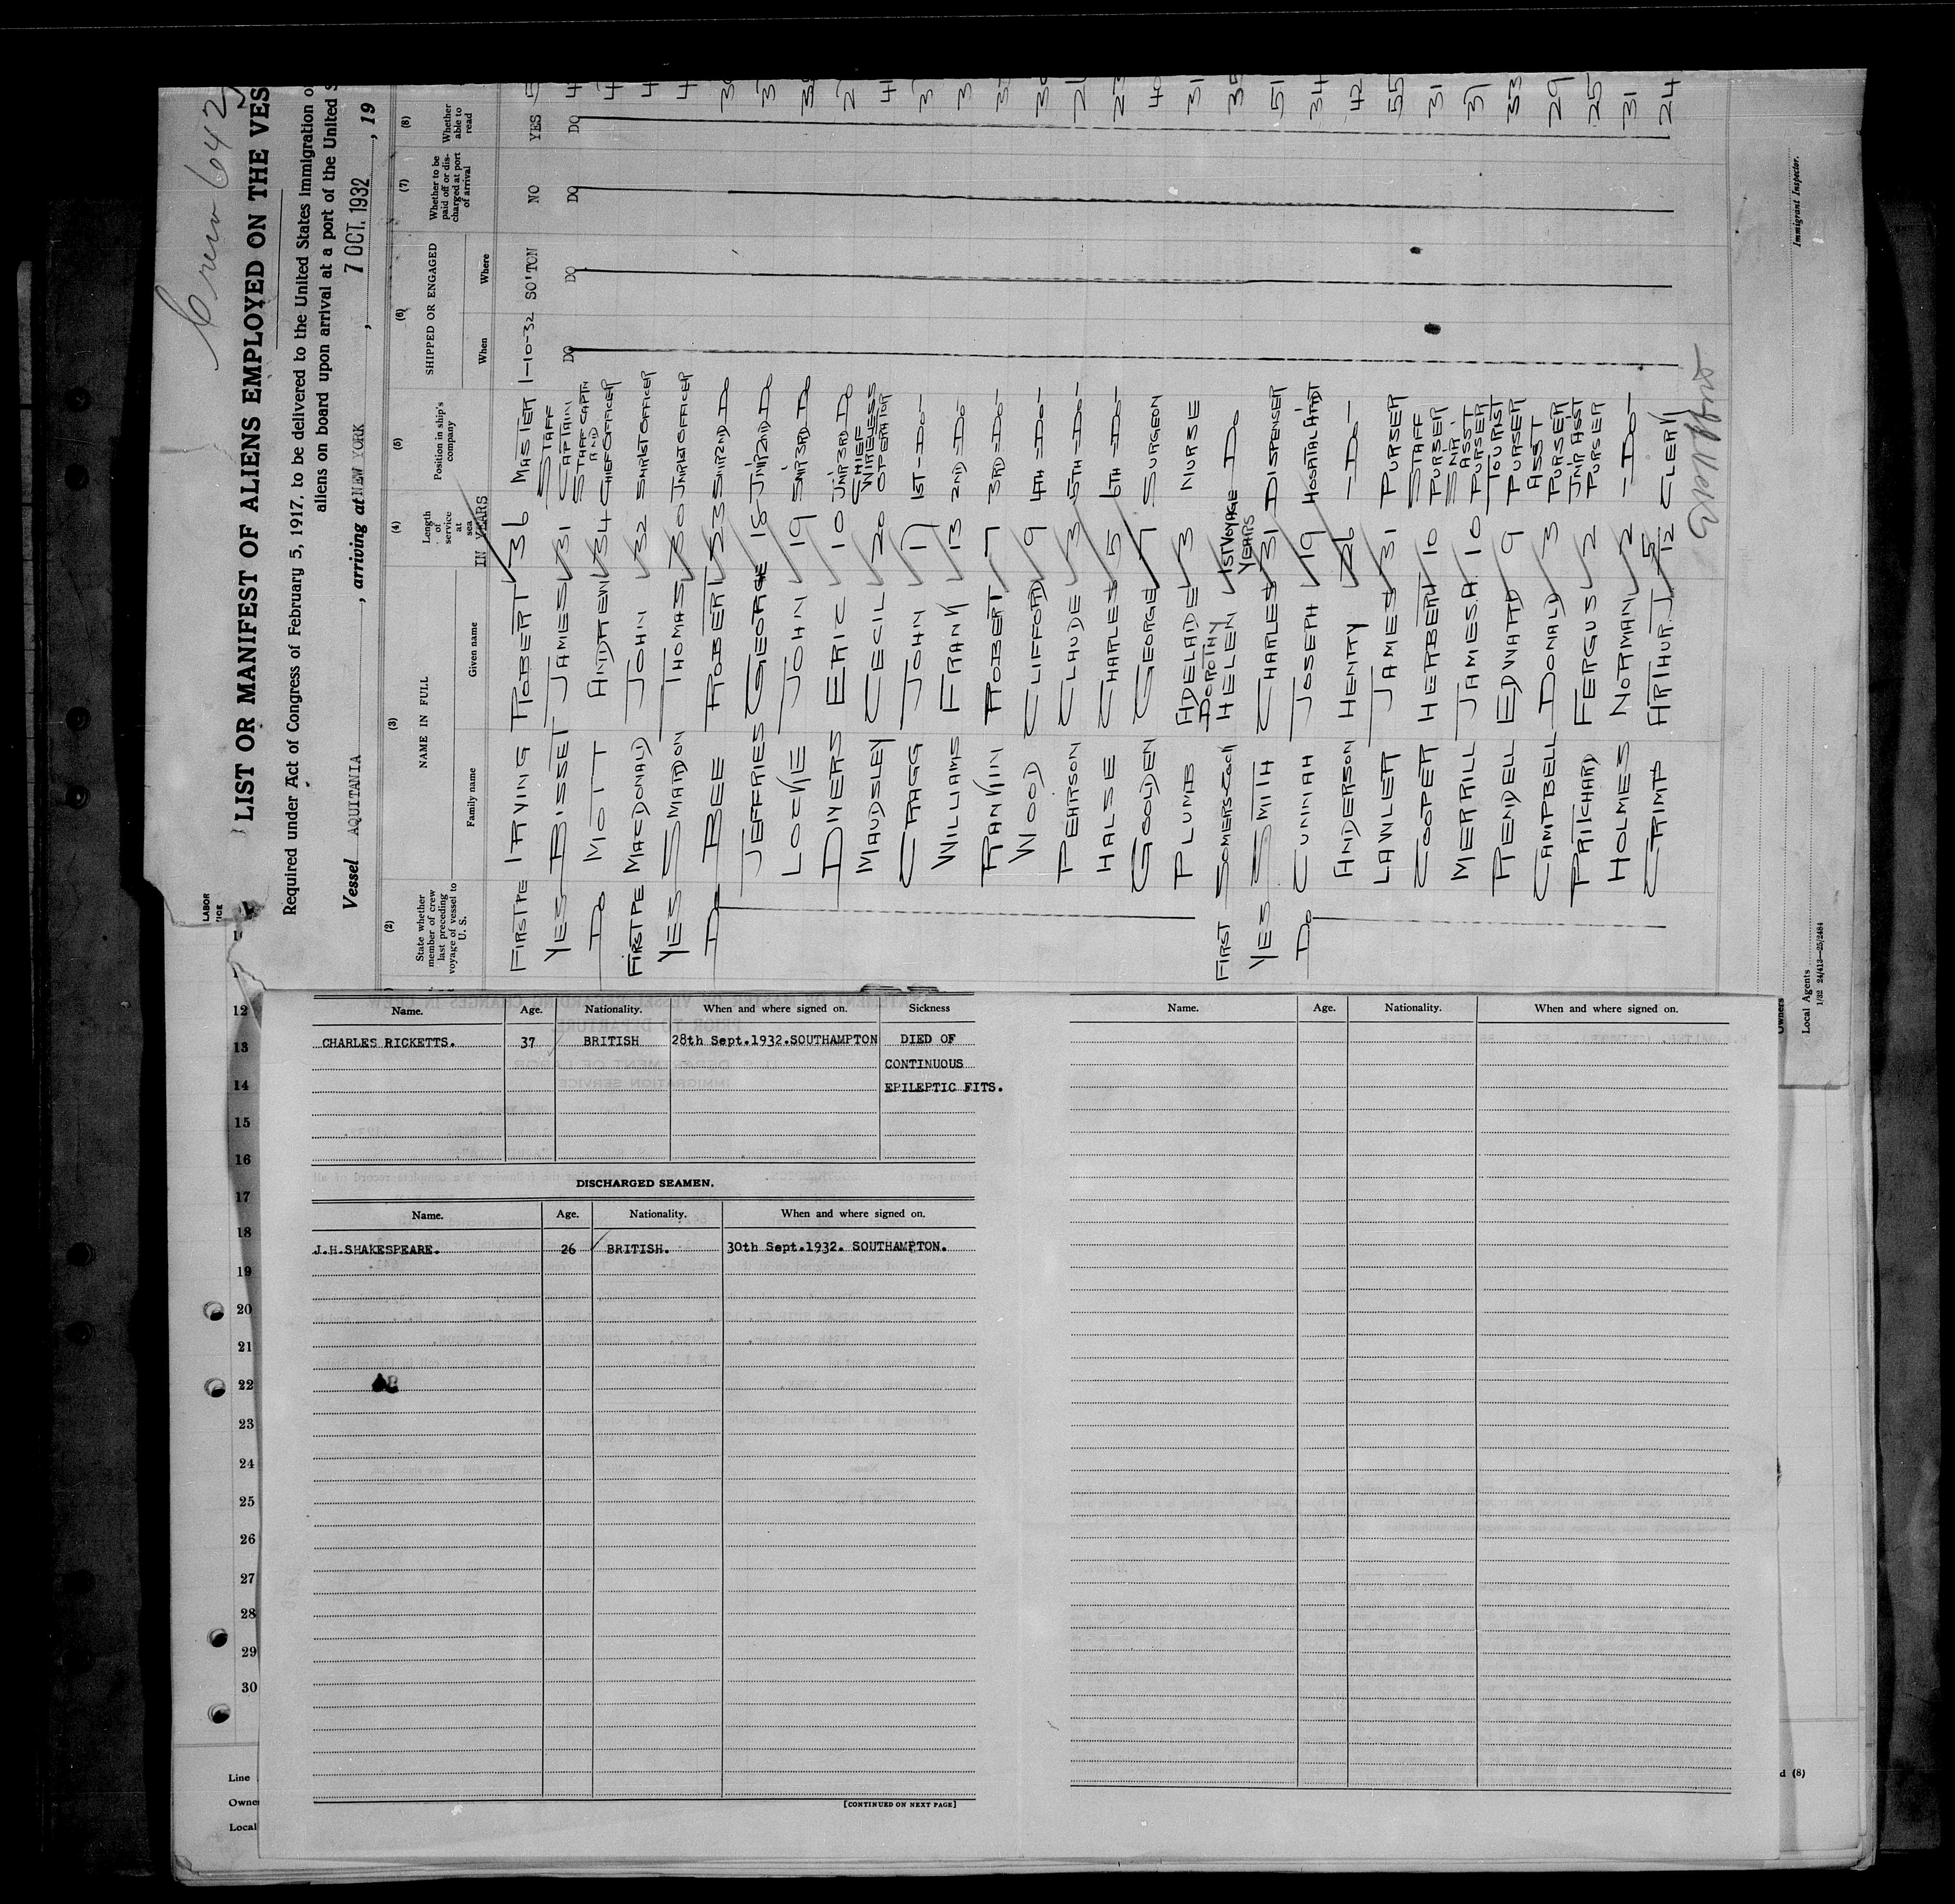 Crew 642
LIST OR MANIFEST OF ALIENS EMPLOYED ON THE VES
Required under Act of Congress of February 5, 1917, to be delivered to the United States Immigration o
aliens on board upon arrival at a port of the United S
Vessel AQUITANIA, arriving at NEW YORK, 7 OCT. 1932, 19
(2) (3) (4) (5) (6) (7) (8)
State whether member of crew last preceding voyage of vessel to U. S.
NAME IN FULL
Family name Given name
Length of service at sea IN YEARS
Position in ship's company
SHIPPED OR ENGAGED
When Where
Whether to be paid off or discharged at port of arrival
Whether able to read
FIRST PE IRVING ROBERT 36 MASTER 1-10-32 SO'TON NO YES
YES BISSET JAMES 31 STAFF CAPTAIN DO DO DO DO
DO MOTT ANDREW 34 STAFF CAPTN AND CHIEF OFFICER
FIRST PE MACDONALD JOHN 32 SNR 1ST OFFICER
YES SMARDON THOMAS 30 JNR 1ST OFFICER
DO BEE ROBERT 33 SNR 2ND DO
JEFFRIES GEORGE 18 JNR 2ND DO
LOCKE JOHN 19 SNR 3RD DO
DIVERS ERIC 10 JNR 3RD DO
MAUDSLEY CECIL 20 CHIEF WIRELESS OPERATOR
CRAGG JOHN 17 1ST -DO-
WILLIAMS FRANK 13 2ND -DO-
RANKIN ROBERT 7 3RD -DO-
WOOD CLIFFORD 9 4TH -DO-
PEARSON CLAUDE 3 5TH -DO-
HALSE CHARLES 5 6TH -DO-
GOOLDEN GEORGE 7 SURGEON
PLUMB ADELAIDE 3 NURSE 31
FIRST SOMERS-COCK DOROTHY HELEN 1ST VOYAGE DO 35
YES SMITH CHARLES YEARS 31 DISPENSER 51
DO CUNNAH JOSEPH 19 HOSPITAL ATTDT 34
ANDERSON HENRY 26 -DO- 42
LAWLER JAMES 31 PURSER 55
COOPER HERBERT 10 STAFF PURSER 31
MERRILL JAMES.A 10 SNR ASST PURSER 31
RENDELL EDWARD 9 TOURIST PURSER 33
CAMPBELL DONALD 3 ASST PURSER 29
PRITCHARD FERGUS 2 JNR ASST PURSER 25
HOLMES NORMAN 2 -DO- 31
CRIMP ARTHUR.J 5/12 CLERK 24
Immigrant Inspector.
Owners
Local Agents
1/32 24/413-25/2484
LABOR
VICE
12
13
14
15
16
17
18
19
20
21
22
23
24
25
26
27
28
29
30
Line
Owne
Local
d (8)
Name. Age. Nationality. When and where signed on. Sickness
CHARLES RICKETTS. 37 BRITISH 28th Sept.1932.SOUTHAMPTON DIED OF
CONTINUOUS
EPILEPTIC FITS.
DISCHARGED SEAMEN.
Name. Age. Nationality. When and where signed on.
J.H.SHAKESPEARE. 26 BRITISH. 30th Sept.1932. SOUTHAMPTON.
[CONTINUED ON NEXT PAGE]
Name. Age. Nationality. When and where signed on.